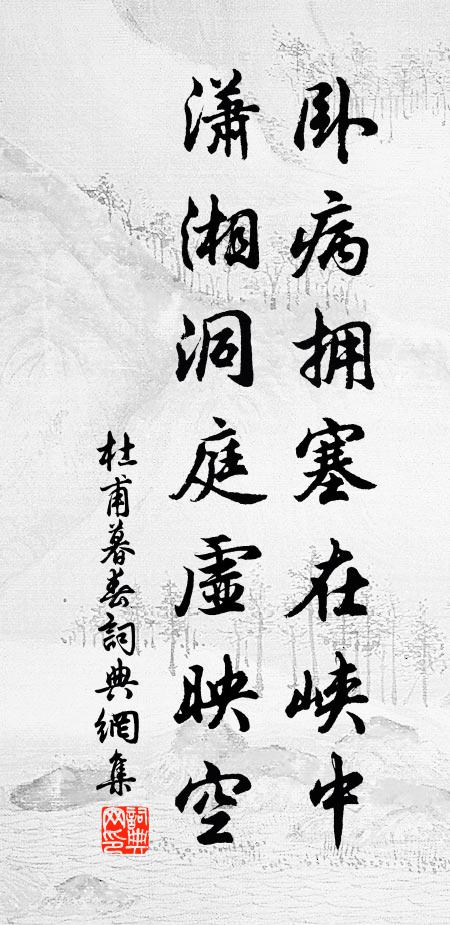 卧病拥塞在峡中
潇湘洞庭虚映空
杜甫暮春詞典網集
詞典网印